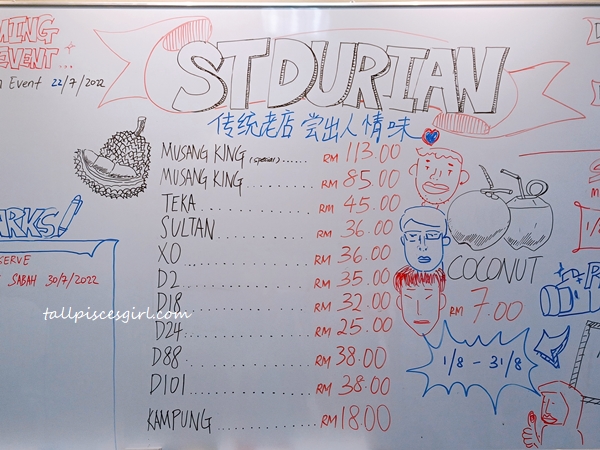 MING
EVENT...
Event 22/7/2022
ST DURIAN
传统老店 尝出人情味
MUSANG KING (special)...... RM 113.00
MUSANG KING............ RM 85.00
TEKA................ RM 45.00
SULTAN............. RM 36.00
XO................ RM 36.00
D2................ RM 35.00
D18............... RM 32.00
D24............... RM 25.00
D88............... RM 38.00
D101.............. RM 38.00
KAMPUNG.......... RM 18.00
COCONUT
RM 7.00
1/8 - 31/8
ARKS
SERVE
SABAH 30/7/2022
tallpiscesgirl.com